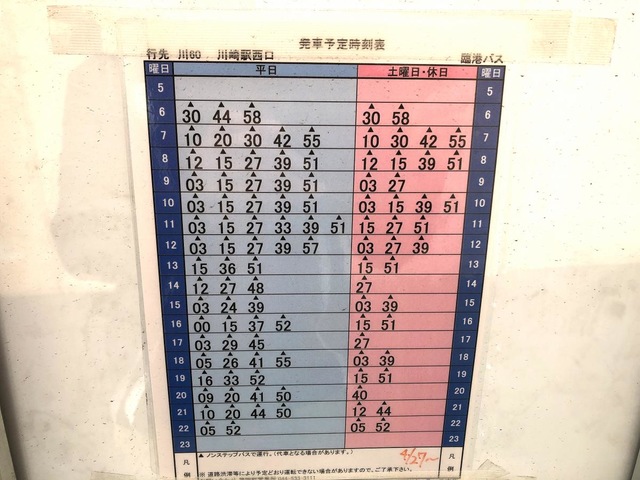 発車予定時刻表
行先 川60 川崎駅西口 臨港バス
曜日 平日 土曜日・休日 曜日
5 5
6 ▲30 ▲44 ▲58 ▲30 ▲58 6
7 ▲10 ▲20 ▲30 ▲42 ▲55 ▲10 ▲30 ▲42 ▲55 7
8 ▲12 ▲15 ▲27 ▲39 ▲51 ▲12 ▲15 ▲39 ▲51 8
9 ▲03 ▲15 ▲27 ▲39 ▲51 ▲03 ▲27 9
10 ▲03 ▲15 ▲27 ▲39 ▲51 ▲03 ▲15 ▲39 ▲51 10
11 ▲03 ▲15 ▲27 ▲33 ▲39 ▲51 ▲15 ▲27 ▲51 11
12 ▲03 ▲15 ▲27 ▲39 ▲57 ▲03 ▲27 ▲39 12
13 ▲15 ▲36 ▲51 ▲15 ▲51 13
14 ▲12 ▲27 ▲48 ▲27 14
15 ▲03 ▲24 ▲39 ▲03 ▲39 15
16 ▲00 ▲15 ▲37 ▲52 ▲15 ▲51 16
17 ▲03 ▲29 ▲45 ▲27 17
18 ▲05 ▲26 ▲41 ▲55 ▲03 ▲39 18
19 ▲16 ▲33 ▲52 ▲15 ▲51 19
20 ▲09 ▲20 ▲41 ▲50 ▲40 20
21 ▲10 ▲20 ▲44 ▲50 ▲12 ▲44 21
22 ▲05 ▲52 ▲05 ▲52 22
23 23
凡例 ▲ノンステップバスで運行。(代車となる場合があります。) 4/27~ 凡例
※ 道路渋滞等により予定どおり運転できない場合がありますので、ご了承下さい。